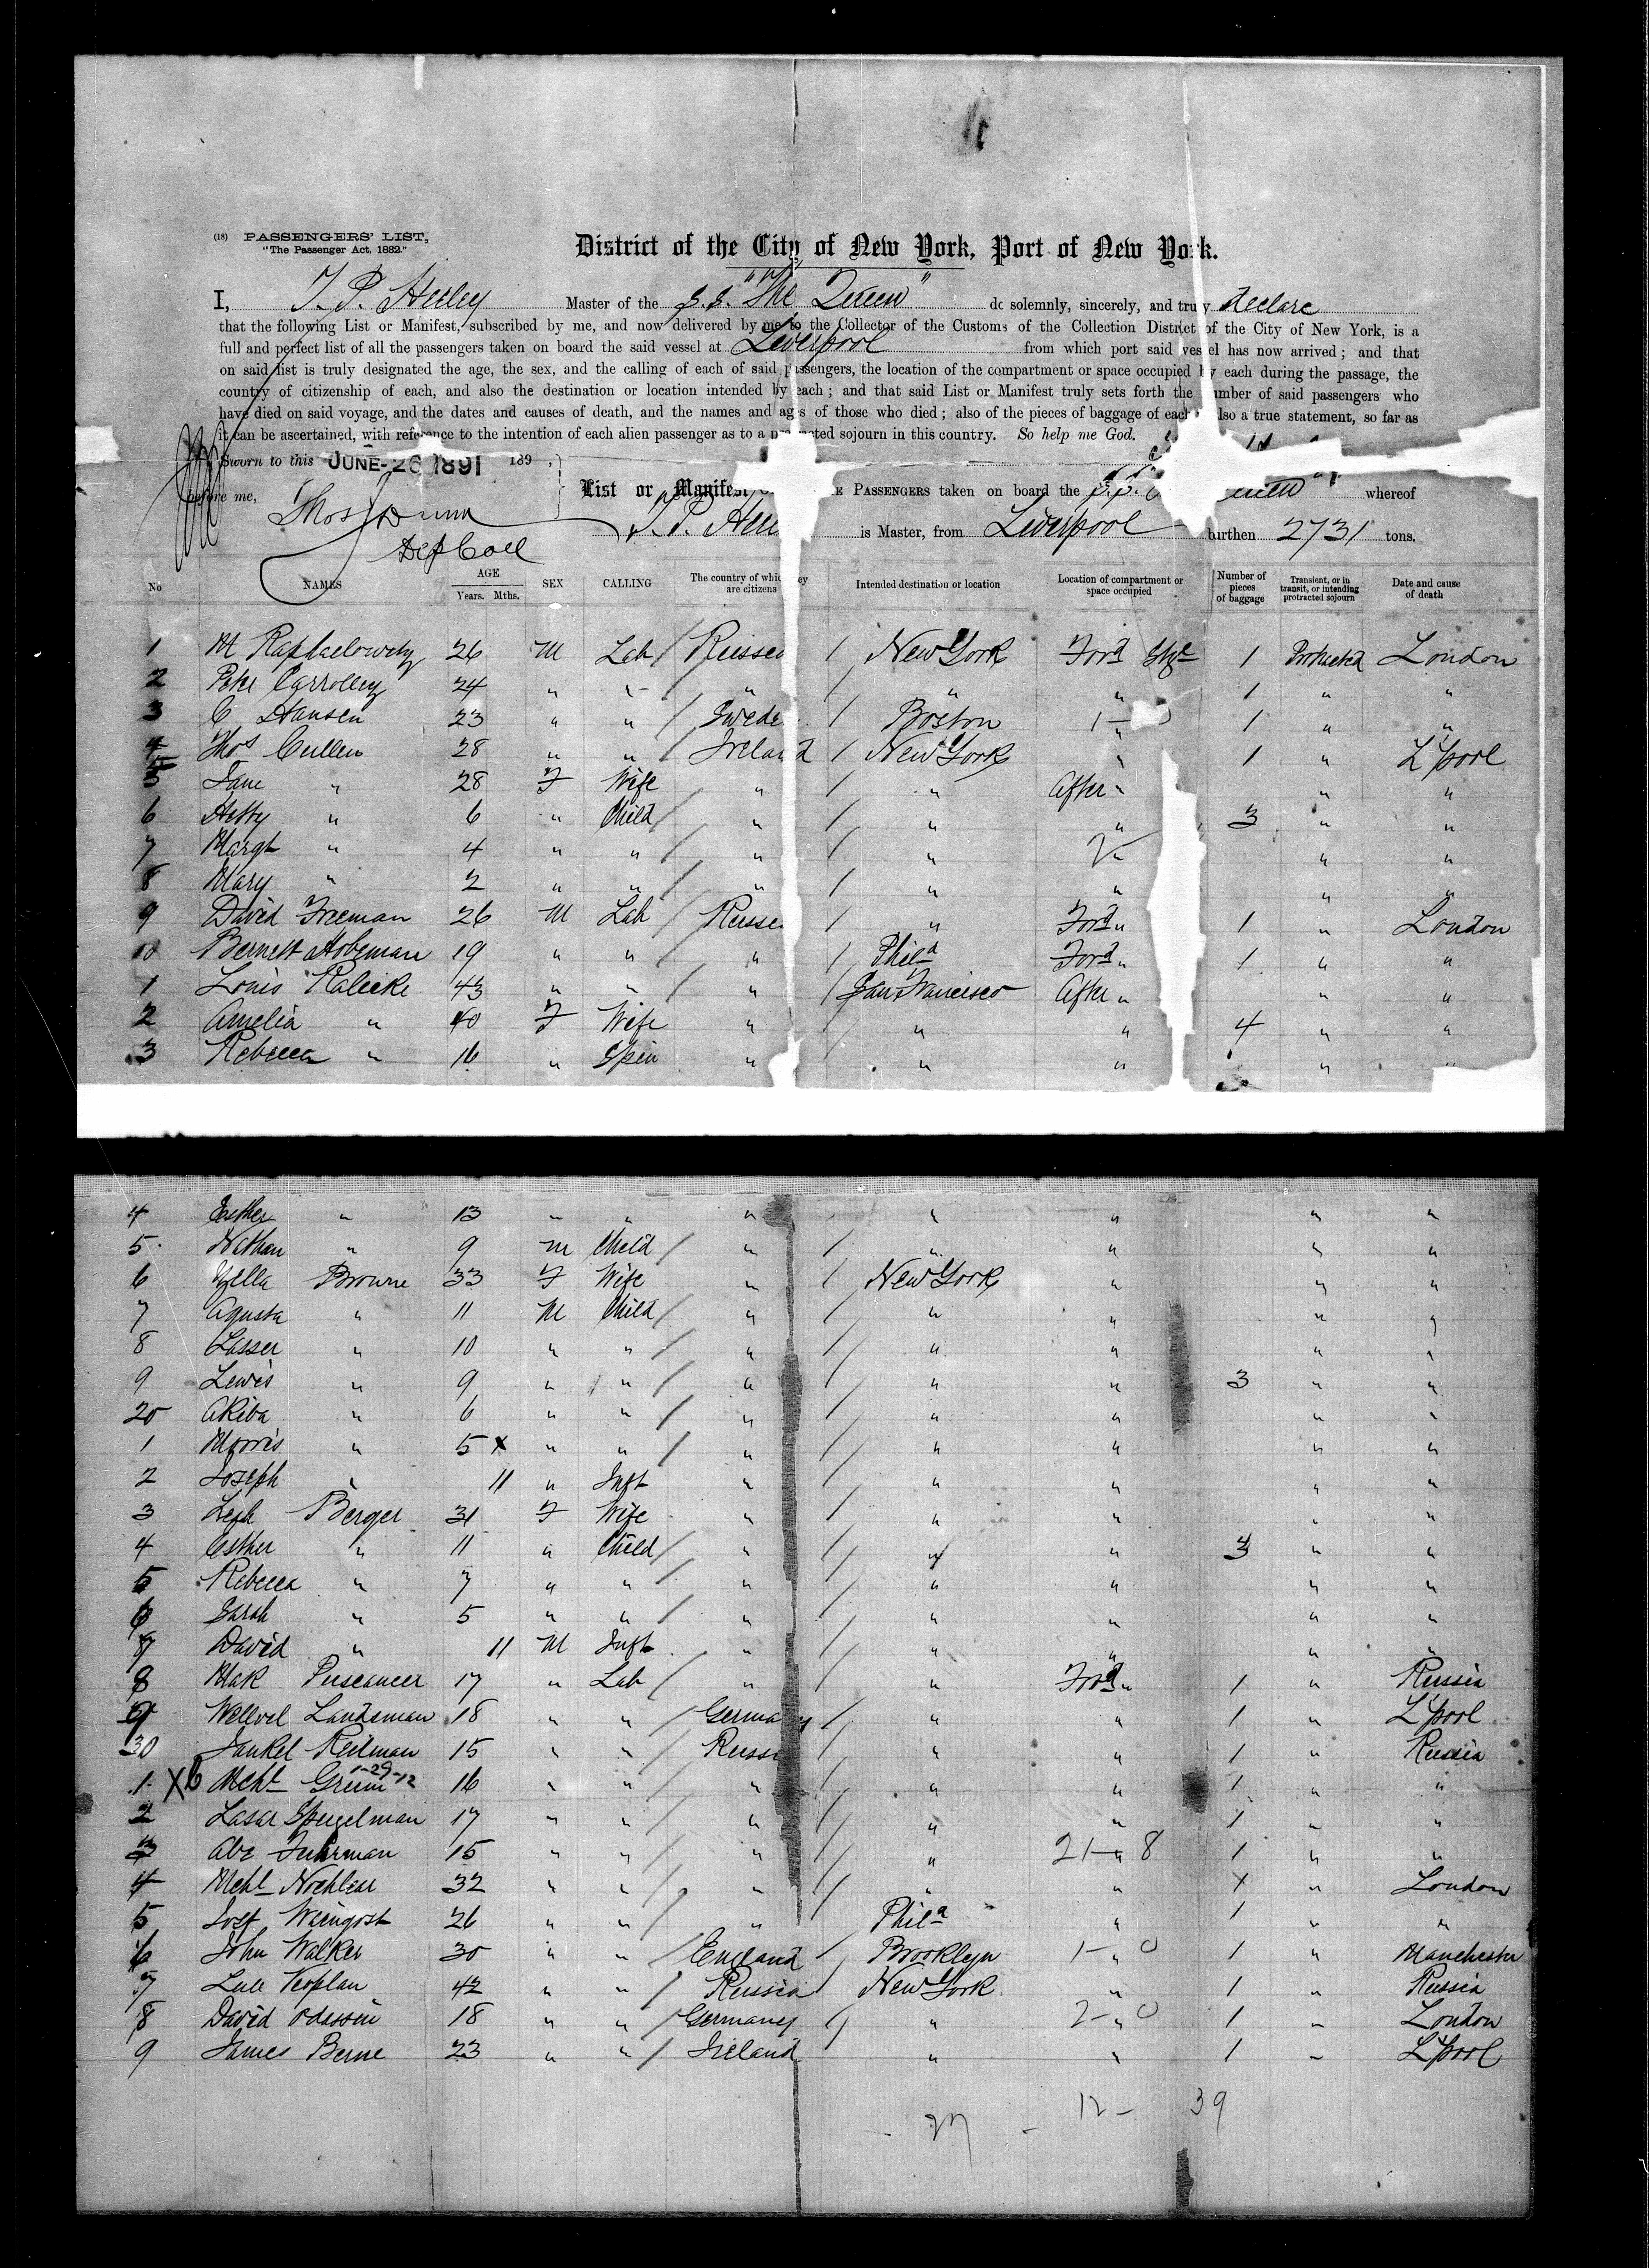 (18) PASSENGERS' LIST,
"The Passenger Act, 1882."
District of the City of New York, Port of New York.
I, T. P. Heeley Master of the S.S. "The Queen" do solemnly, sincerely, and truly declare
that the following List or Manifest, subscribed by me, and now delivered by me to the Collector of the Customs of the Collection District of the City of New York, is a
full and perfect list of all the passengers taken on board the said vessel at Liverpool from which port said vessel has now arrived; and that
on said list is truly designated the age, the sex, and the calling of each of said passengers, the location of the compartment or space occupied by each during the passage, the
country of citizenship of each, and also the destination or location intended by each; and that said List or Manifest truly sets forth the number of said passengers who
have died on said voyage, and the dates and causes of death, and the names and ages of those who died; also of the pieces of baggage of each also a true statement, so far as
it can be ascertained, with reference to the intention of each alien passenger as to a protracted sojourn in this country. So help me God.
Sworn to this JUNE 26 1891 189 ,
before me, List or Manifest E PASSENGERS taken on board the S.S. ueen" whereof
Thos Dunn T. P. Hee is Master, from Liverpool burthen 2731 tons.
Dep Coll
No NAMES AGE Years. Mths. SEX CALLING The country of which they are citizens Intended destination or location Location of compartment or space occupied Number of pieces of baggage Transient, or in transit, or intending protracted sojourn Date and cause of death
1 M Raphaelowitz 26 M Lab / Russe / New York Ford Stge 1 Protracted London
2 Pete Carrolley 24 " " " / " " 1 " "
3 C Hansen 23 " " / Swede / Boston 1- " 1 " "
4 Thos Cullen 28 " " / Ireland / New York " 1 " L'pool
5 Jane " 28 F Wife " / " After " " "
6 Hetty " 6 " Child / " / " " 3 " "
7 Margt " 4 " " / " / " 2 " " "
8 Mary " 2 " " / " / " " " "
9 David Freeman 26 M Lab / Russe / " Ford " 1 " London
10 Bernett Hobeman 19 " " " / Phila Ford " 1 " "
1 Louis Kalicke 43 " " / " / San Francisco After " " "
2 Amelia " 40 F Wife " / " " 4 " "
3 Rebecca " 16 " Spin " " " " "
4 Esther " 13 " " " " " " "
5 Nathan " 9 M Child / " / " " " "
6 Zella Browne 33 F Wife " / New York " " "
7 Agusta " 11 M Child / " / " " " "
8 Lasser " 10 " " / " / " " " "
9 Lewis " 9 " " / " / " " 3 " "
20 Akiba " 6 " " / " / " " " "
1 Morris " 5 x " " / " / " " " "
2 Joseph " 11 " Inft " / " " "
3 Leah Berger 31 F Wife " / " " " "
4 Esther " 11 " Child / " / " " 3 " "
5 Rebecca " 7 " " / " / " " " "
6 Sarah " 5 " " / " / " " " "
7 David " 11 M Inft " / " " " "
8 Mak 17 " Lab / " / " Ford " 1 " Russia
9 Wellvel Landsman 18 " " / Germany / " " 1 " L'pool
30 Jankel Reilman 15 " " / Russi / " " 1 " Russia
1 X6 Mchl Grum 1-29-12 16 " " / " / " " 1 " "
2 Lasar Speigelman 17 " " / " / " 1 " "
3 Abe Fuhrman 15 " " / " / " 21-" 8 1 " "
4 Mchl Nochlear 32 " " / " / " " 1 " London
5 Josf Waingost 26 " " / " Phila " 1 " "
6 John Walker 30 " " / England / Brooklyn 1-" 0 1 " Manchester
7 Kaplan 42 " " / Russia / New York " 1 " Russia
8 David Odassin 18 " " / Germany / " 2-" 0 1 " London
9 James Berne 23 " " / Ireland " " 1 " L'pool
- 27 - 12- 39